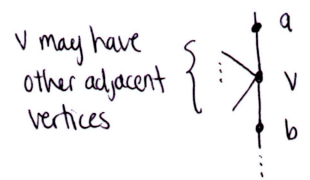 v may have
other adjacent
vertices
a
v
b